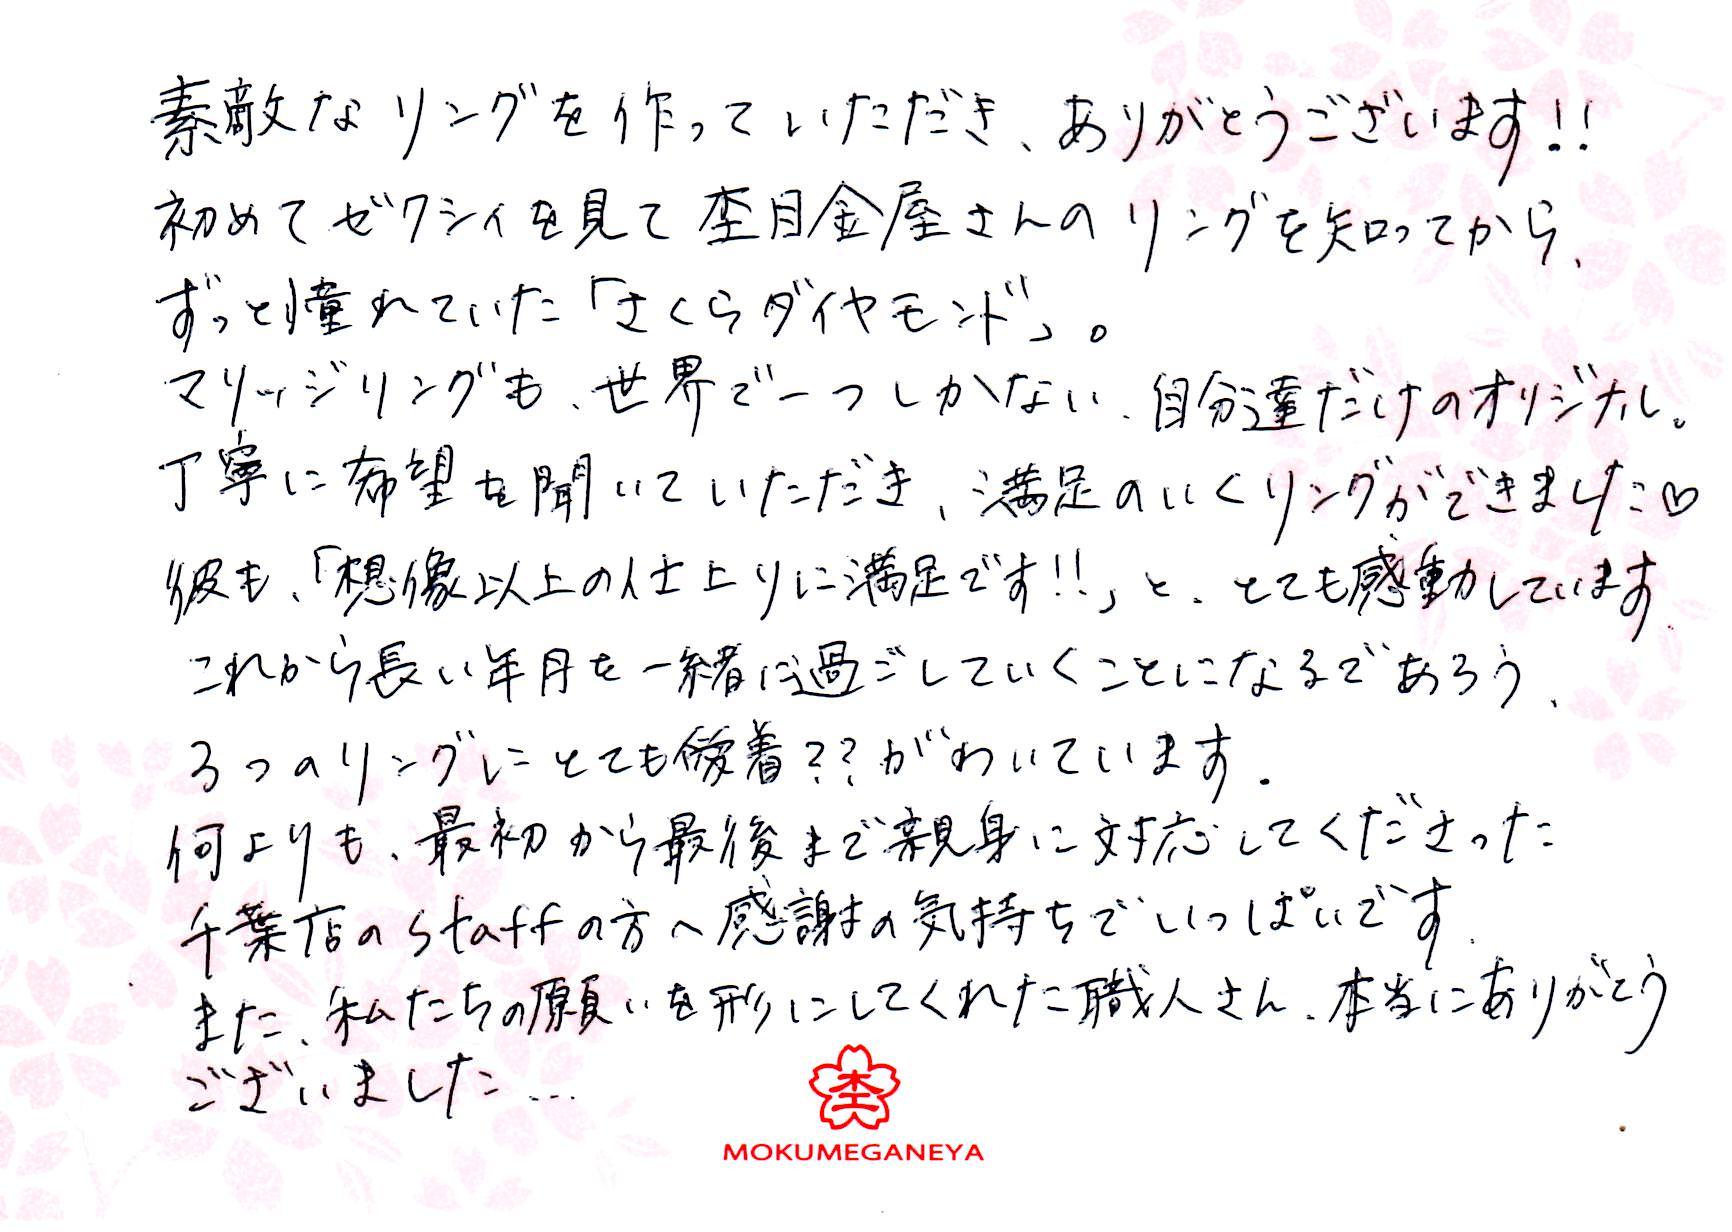 素敵なリングを作っていただき、ありがとうございます!!
初めてゼクシィを見て杢目金屋さんのリングを知ってから、
ずっと憧れていた「さくらダイヤモンド」。
マリッジリングも、世界で一つしかない、自分達だけのオリジナル。
丁寧に希望を聞いていただき、満足のいくリングができました♡
彼も、「想像以上の仕上りに満足です!!」と、とても感動しています
これから長い年月を一緒に過ごしていくことになるであろう、
3つのリングにとても愛着??がわいています.
何よりも、最初から最後まで親身に対応してくださった
千葉店のstaffの方へ感謝の気持ちでいっぱいです.
また、私たちの願いを形にしてくれた職人さん、本当にありがとう
ございました…
杢
MOKUMEGANEYA